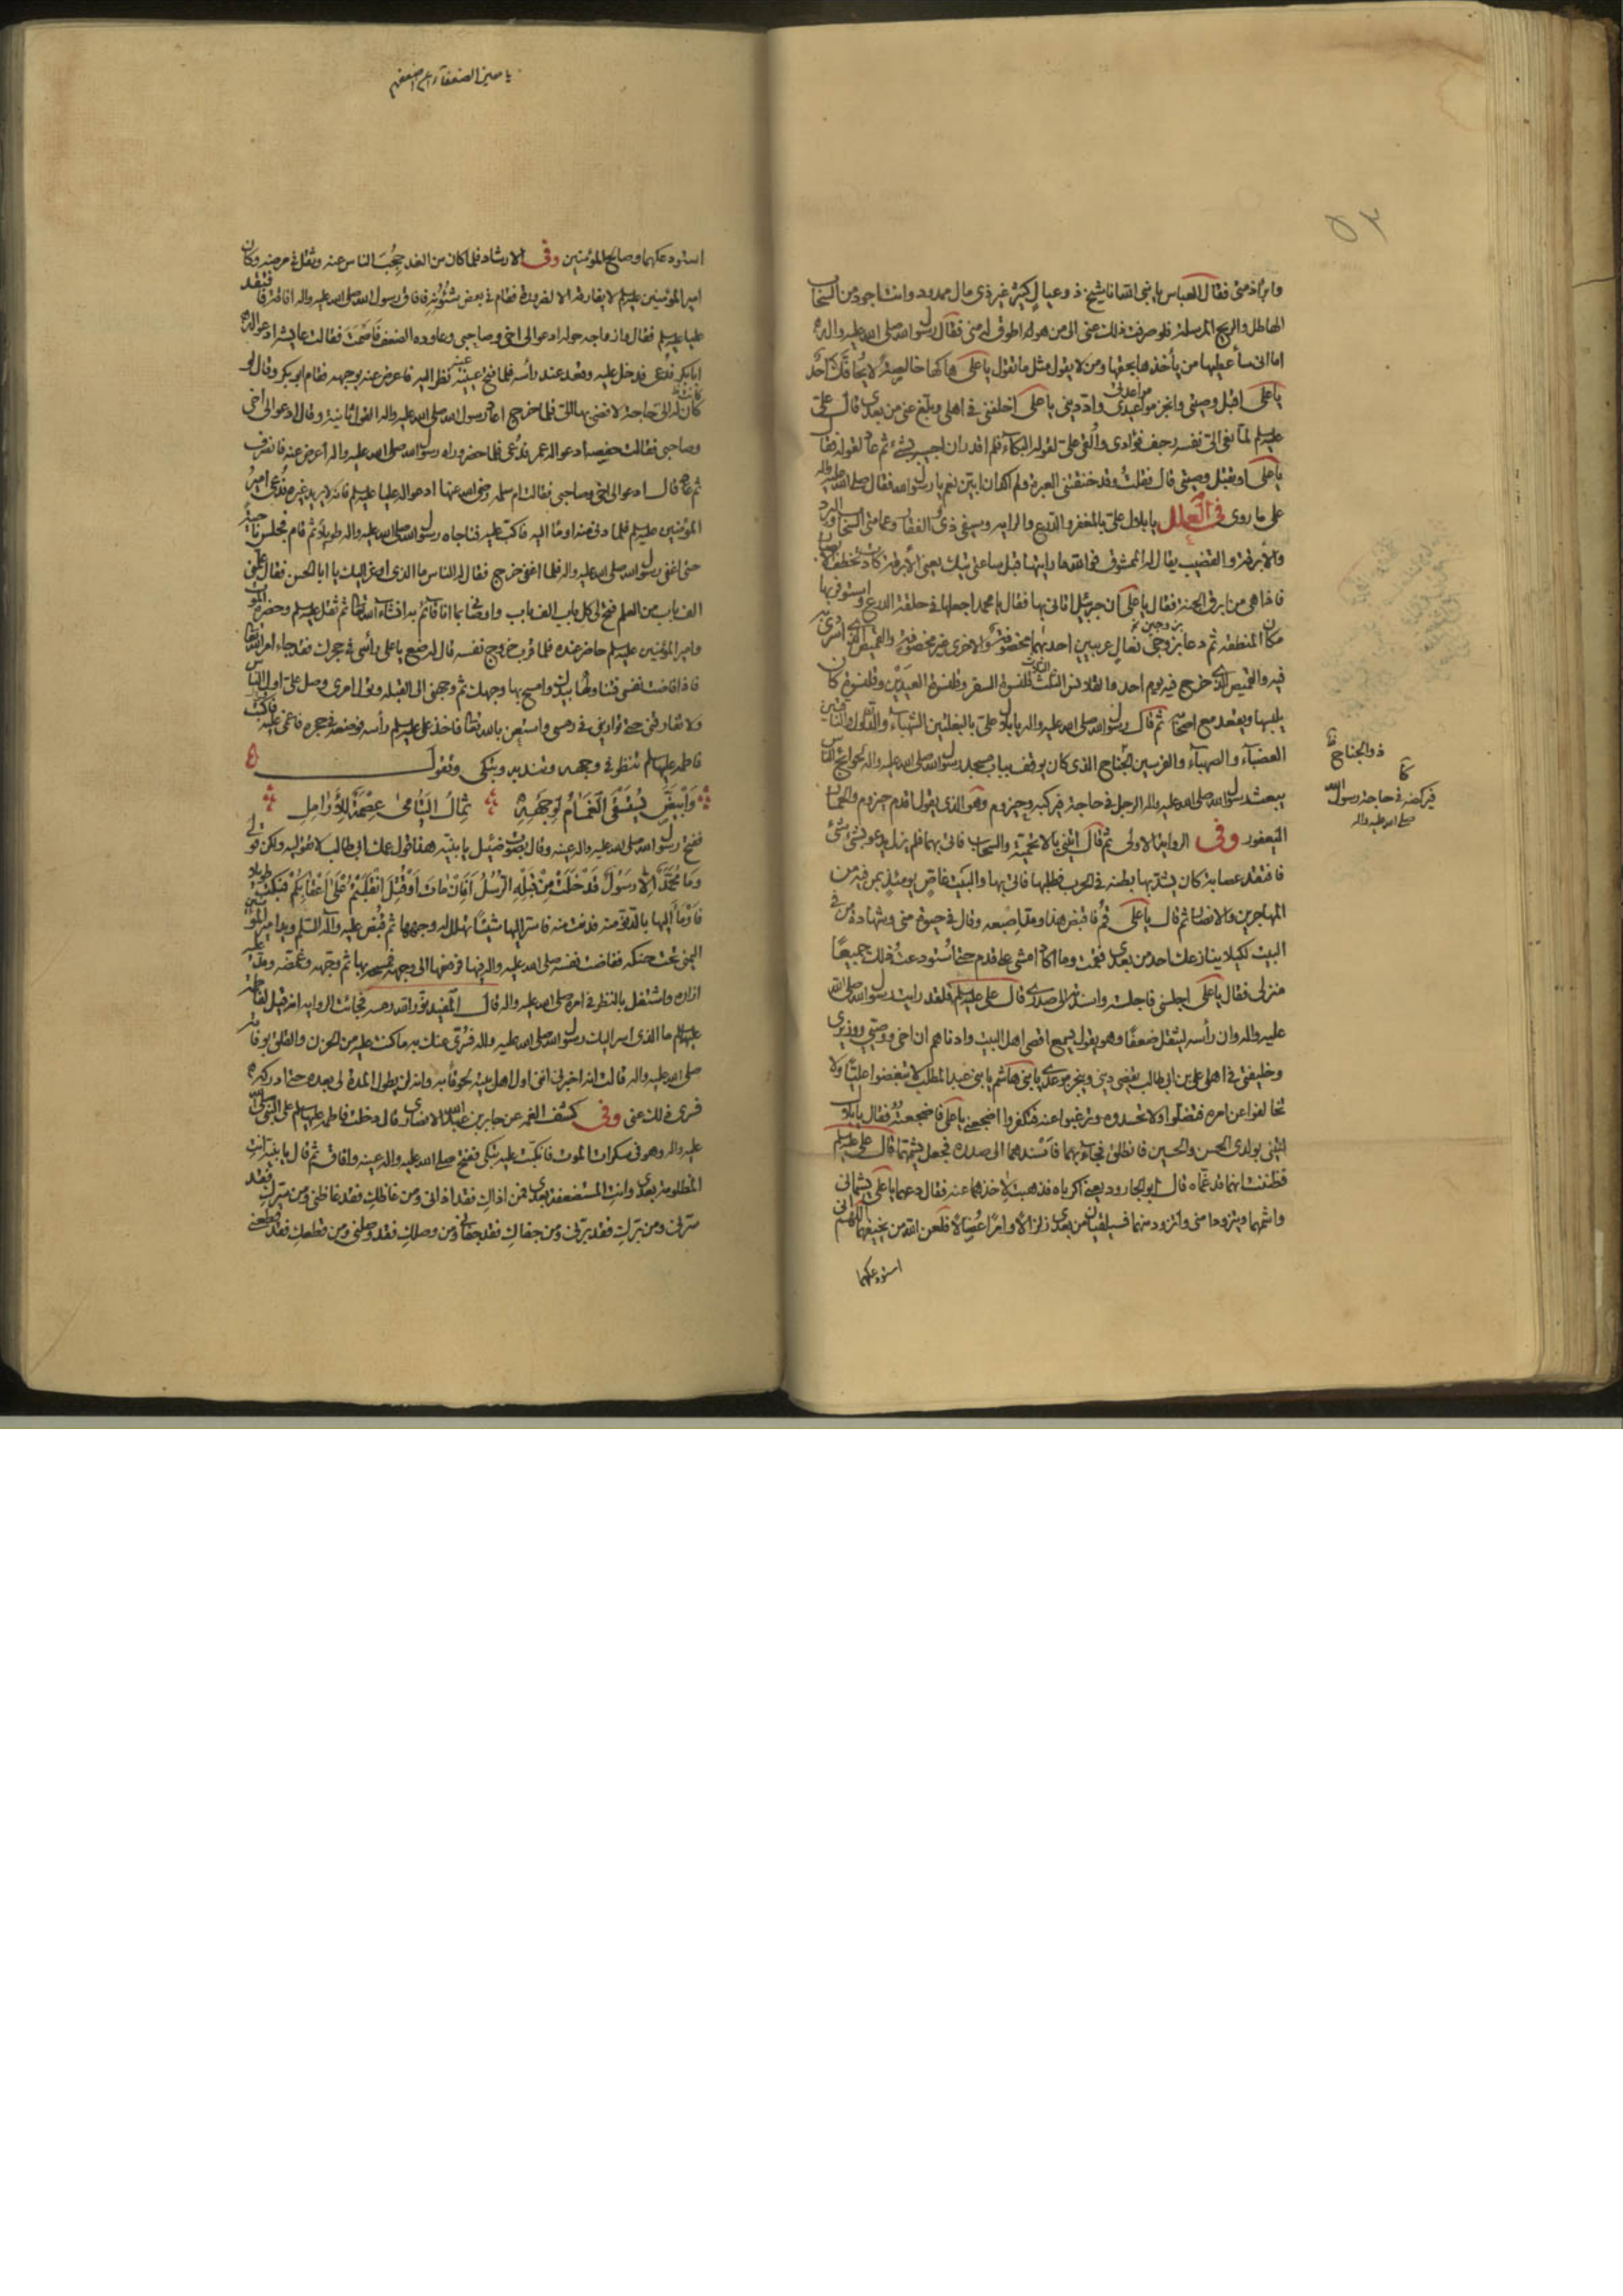 وابراذمتى فقال العباس يا نبى الله انا شيخ ذو عيال كثيرة غير ذى مال ممدود وانت اجود من السحاب
الهاطل والريح المرسلة فلو صرفت ذلك عنى الى من هو له اطوق له منى فقال رسول الله صلى الله عليه واله
اما انى سأعطيها من يأخذها بحقها ومن لا يقول مثل ما تقول يا على هاكها خالصة لا يحاقك احد
يا على اقبل وصيتى وانجز مواعيدى وادّ دينى يا على اخلفنى فى اهلى وبلغ عنى من بعدى قال على
عليه السلم لما نعى الىّ نفسه رجف فؤادى وألقى علىّ لقوله البكاء فلم اقدر ان اجيبه بشئ ثم عاد لقوله فقال
يا على اوتقبل وصيتى قال فقلت وقد خنقتنى العبرة ولم اكد ان ابين نعم يا رسول الله فقال صلى الله عليه واله
على ما روى فى العلل يا بلال علىّ بالمغفر والدرع والراية وسيفى ذى الفقار وعمامتى السحاب والبرد
والأبرقة والقضيب يقال له الممشوق فوالله ما رايتها قبل ساعتى تيك يعنى الأبرقة كادت تخطف الابصار
فاذا هى من ابرق الجنة فقال يا على ان جبرئيل اتانى بها فقال يا محمد اجعلها فى حلقة الدرع واستوفر بها
مكان المنطقة ثم دعا بزوجى نعال عربيين احديهما مخصوفة والاخرى غير مخصوفة والقميص الذى اسرى به
فيه والقميص الذى خرج فيه يوم احد والقلانس الثلث قلنسوة السفر وقلنسوة العيدين وقلنسوة كان
يلبسها ويقعد مع اصحابه ثم قال رسول الله صلى الله عليه واله يا بلال علىّ بالبغلتين الشهباء والدلدل والناقتين
العضباء والصهباء والفرسين الجناح الذى كان يوقف بباب مسجد رسول الله صلى الله عليه واله لحوائج الناس
يبعث رسول الله صلى الله عليه واله الرجل فى حاجة فيركبه وحيزوم وهو الذى يقول اقدم حيزوم والحمار
اليعفور وفى الرواية الاولى ثم قال ائتنى بالاتحمية والسحاب فاتى بهما فلم يزل يدعو بشئ شئ
فافتقد عصابة كان يشد بها بطنه فى الحرب فطلبها فاتى بها والبيت غاص يومئذ بمن فيه من
المهاجرين والانصار ثم قال يا على قم فاقبض هذا ومد اصبعه وقال فى حيوة منى وشهادة من فى
البيت لكيلا ينازعك احد من بعدى فقمت وما اكاد امشى على قدم حتى استودعت ذلك جميعًا
منزلى فقال يا على اجلسنى فاجلسته واسندته الى صدرى قال على عليه السلم فلقد رايت رسول الله صلى الله
عليه واله وان رأسه ليثقل ضعفًا وهو يقول يسمع اقصى اهل البيت وادناهم ان اخى ووصيى ووزيرى
وخليفتى فى اهلى على بن ابى طالب يقضى دينى وينجز موعدى يا بنى هاشم يا بنى عبد المطلب لا تبغضوا عليًّا ولا
تخالفوا عن امره فتضلوا ولا تحسدوه وترغبوا عنه فتكفروا اضجعنى يا على فاضجعته فقال يا بلال
ائتنى بولدى الحسن والحسين فانطلق فجاء بهما فاسندهما الى صدره فجعل يشمهما قال على عليه السلم
فظننت انهما قد غماه قال ابو الجارود يعنى اكرباه فذهبت لاخذهما عنه فقال دعهما يا على يشمانى
واشمهما ويتزودا منى واتزود منهما فسيلقيان من بعدى زلزالًا وامرًا عضالًا فلعن الله من يخيفهما اللهم انى
استودعكهما
ذو الجناح
فيركضه فى حاجة رسول الله
صلى الله عليه واله
استودعكهما وصالح المؤمنين وفى الارشاد فلما كان من الغد حجب الناس عنه وثقل فى مرضه وكان
امير المؤمنين عليه السلم لا يفارقه الا لضرورة فقام فى بعض شئونه فافاق رسول الله صلى الله عليه واله افاقة فافتقد
عليا عليه السلم فقال وازواجه حوله ادعوا لى اخى وصاحبى وعاوده الضعف فاصمت فقالت عايشة ادعوا له
ابا بكر فدعى فدخل عليه وقعد عند رأسه فلما فتح عينه نظر اليه فاعرض عنه بوجهه فقام ابو بكر وقال لو
كان له الىّ حاجة لافضى بها الىّ فلما خرج اعاد رسول الله صلى الله عليه واله القول ثانية وقال ادعوا لى اخى
وصاحبى فقالت حفصة ادعوا له عمر فدعى فلما حضر وراه رسول الله صلى الله عليه واله اعرض عنه فانصرف
ثم قال ادعوا لى اخى وصاحبى فقالت ام سلمة رضى الله عنها ادعوا له عليا عليه السلم فانه لا يريد غيره فدعى امير
المؤمنين عليه السلم فلما دنى منه اومأ اليه فاكب عليه فناجاه رسول الله صلى الله عليه واله طويلًا ثم قام فجلس ناحية
حتى اغفى رسول الله صلى الله عليه واله فلما اغفى خرج فقال له الناس ما الذى اوعز اليك يا ابا الحسن فقال علمنى
الف باب من العلم فتح لى كل باب الف باب واوصانى بما انا قائم به انشاء الله تعالى ثم ثقل عليه السلم وحضره الموت
وامير المؤمنين عليه السلم حاضر عنده فلما قرب خروج نفسه قال له ضع يا على رأسى فى حجرك فقد جاء امر الله تعالى
فاذا فاضت نفسى فتناولها بيدك وامسح بها وجهك ثم وجهنى الى القبلة وتول امرى وصل علىّ اول الناس
ولا تفارقنى حتى توارينى فى رمسى واستعن بالله تعالى فاخذ على عليه السلم رأسه فوضعه فى حجره فاغمى عليه فاكبت
فاطمه عليها السلم تنظر فى وجهه وتندبه وتبكى وتقول
وَاَبْيَضَ يُسْتَسْقَى الْغَمَامُ بِوَجْهِهِ ثِمَالُ الْيَتَامىٰ عِصْمَةٌ لِلْأَرَامِلِ
ففتح رسول الله صلى الله عليه واله عينه وقال بصوت ضئيل يا بنية هذا قول عمك ابى طالب لا تقوليه ولكن قولى
وَمَا مُحَمَّدٌ اِلَّا رَسُولٌ قَدْ خَلَتْ مِنْ قَبْلِهِ الرُّسُلُ اَفَاِنْ مَاتَ اَوْ قُتِلَ انْقَلَبْتُمْ عَلىٰ اَعْقَابِكُمْ فبكت طويلا
فاومأ اليها بالدنو منه فدنت منه فاسر اليها شيئًا تهلل له وجهها ثم قبض عليه وآله السلم ويد امير المؤمنين
اليمنى تحت حنكه ففاضت نفسه صلى الله عليه واله فيها فرفعها الى وجهه فمسحه بها ثم وجهه وغمضه ومد عليه
ازاره واشتغل بالنظر فى امره صلى الله عليه واله قال المفيد نور الله رمسه فجائت الرواية انه قيل لفاطمة
عليها السلم ما الذى اسر اليك رسول الله صلى الله عليه واله فسرى عنك به ما كنت عليه من الحزن والقلق بوفاته
صلى الله عليه واله قالت انه اخبرنى اننى اول اهل بيته لحوقًا به وانه لن يطول المدة لى بعده حتى ادركه
فسرى ذلك عنى وفى كشف الغمه عن جابر بن عبد الله الانصارى قال دخلت فاطمه عليها السلم على النبى صلى الله
عليه واله وهو فى سكرات الموت فانكبت عليه تبكى ففتح صلى الله عليه واله عينه وافاق ثم قال يا بنية انت
المظلومة بعدى وانت المستضعفة بعدى فمن اذاك فقد اذانى ومن غاظك فقد غاظنى ومن سرك فقد
سرنى ومن برك فقد برنى ومن جفاك فقد جفانى ومن وصلك فقد وصلنى ومن قطعك فقد قطعنى